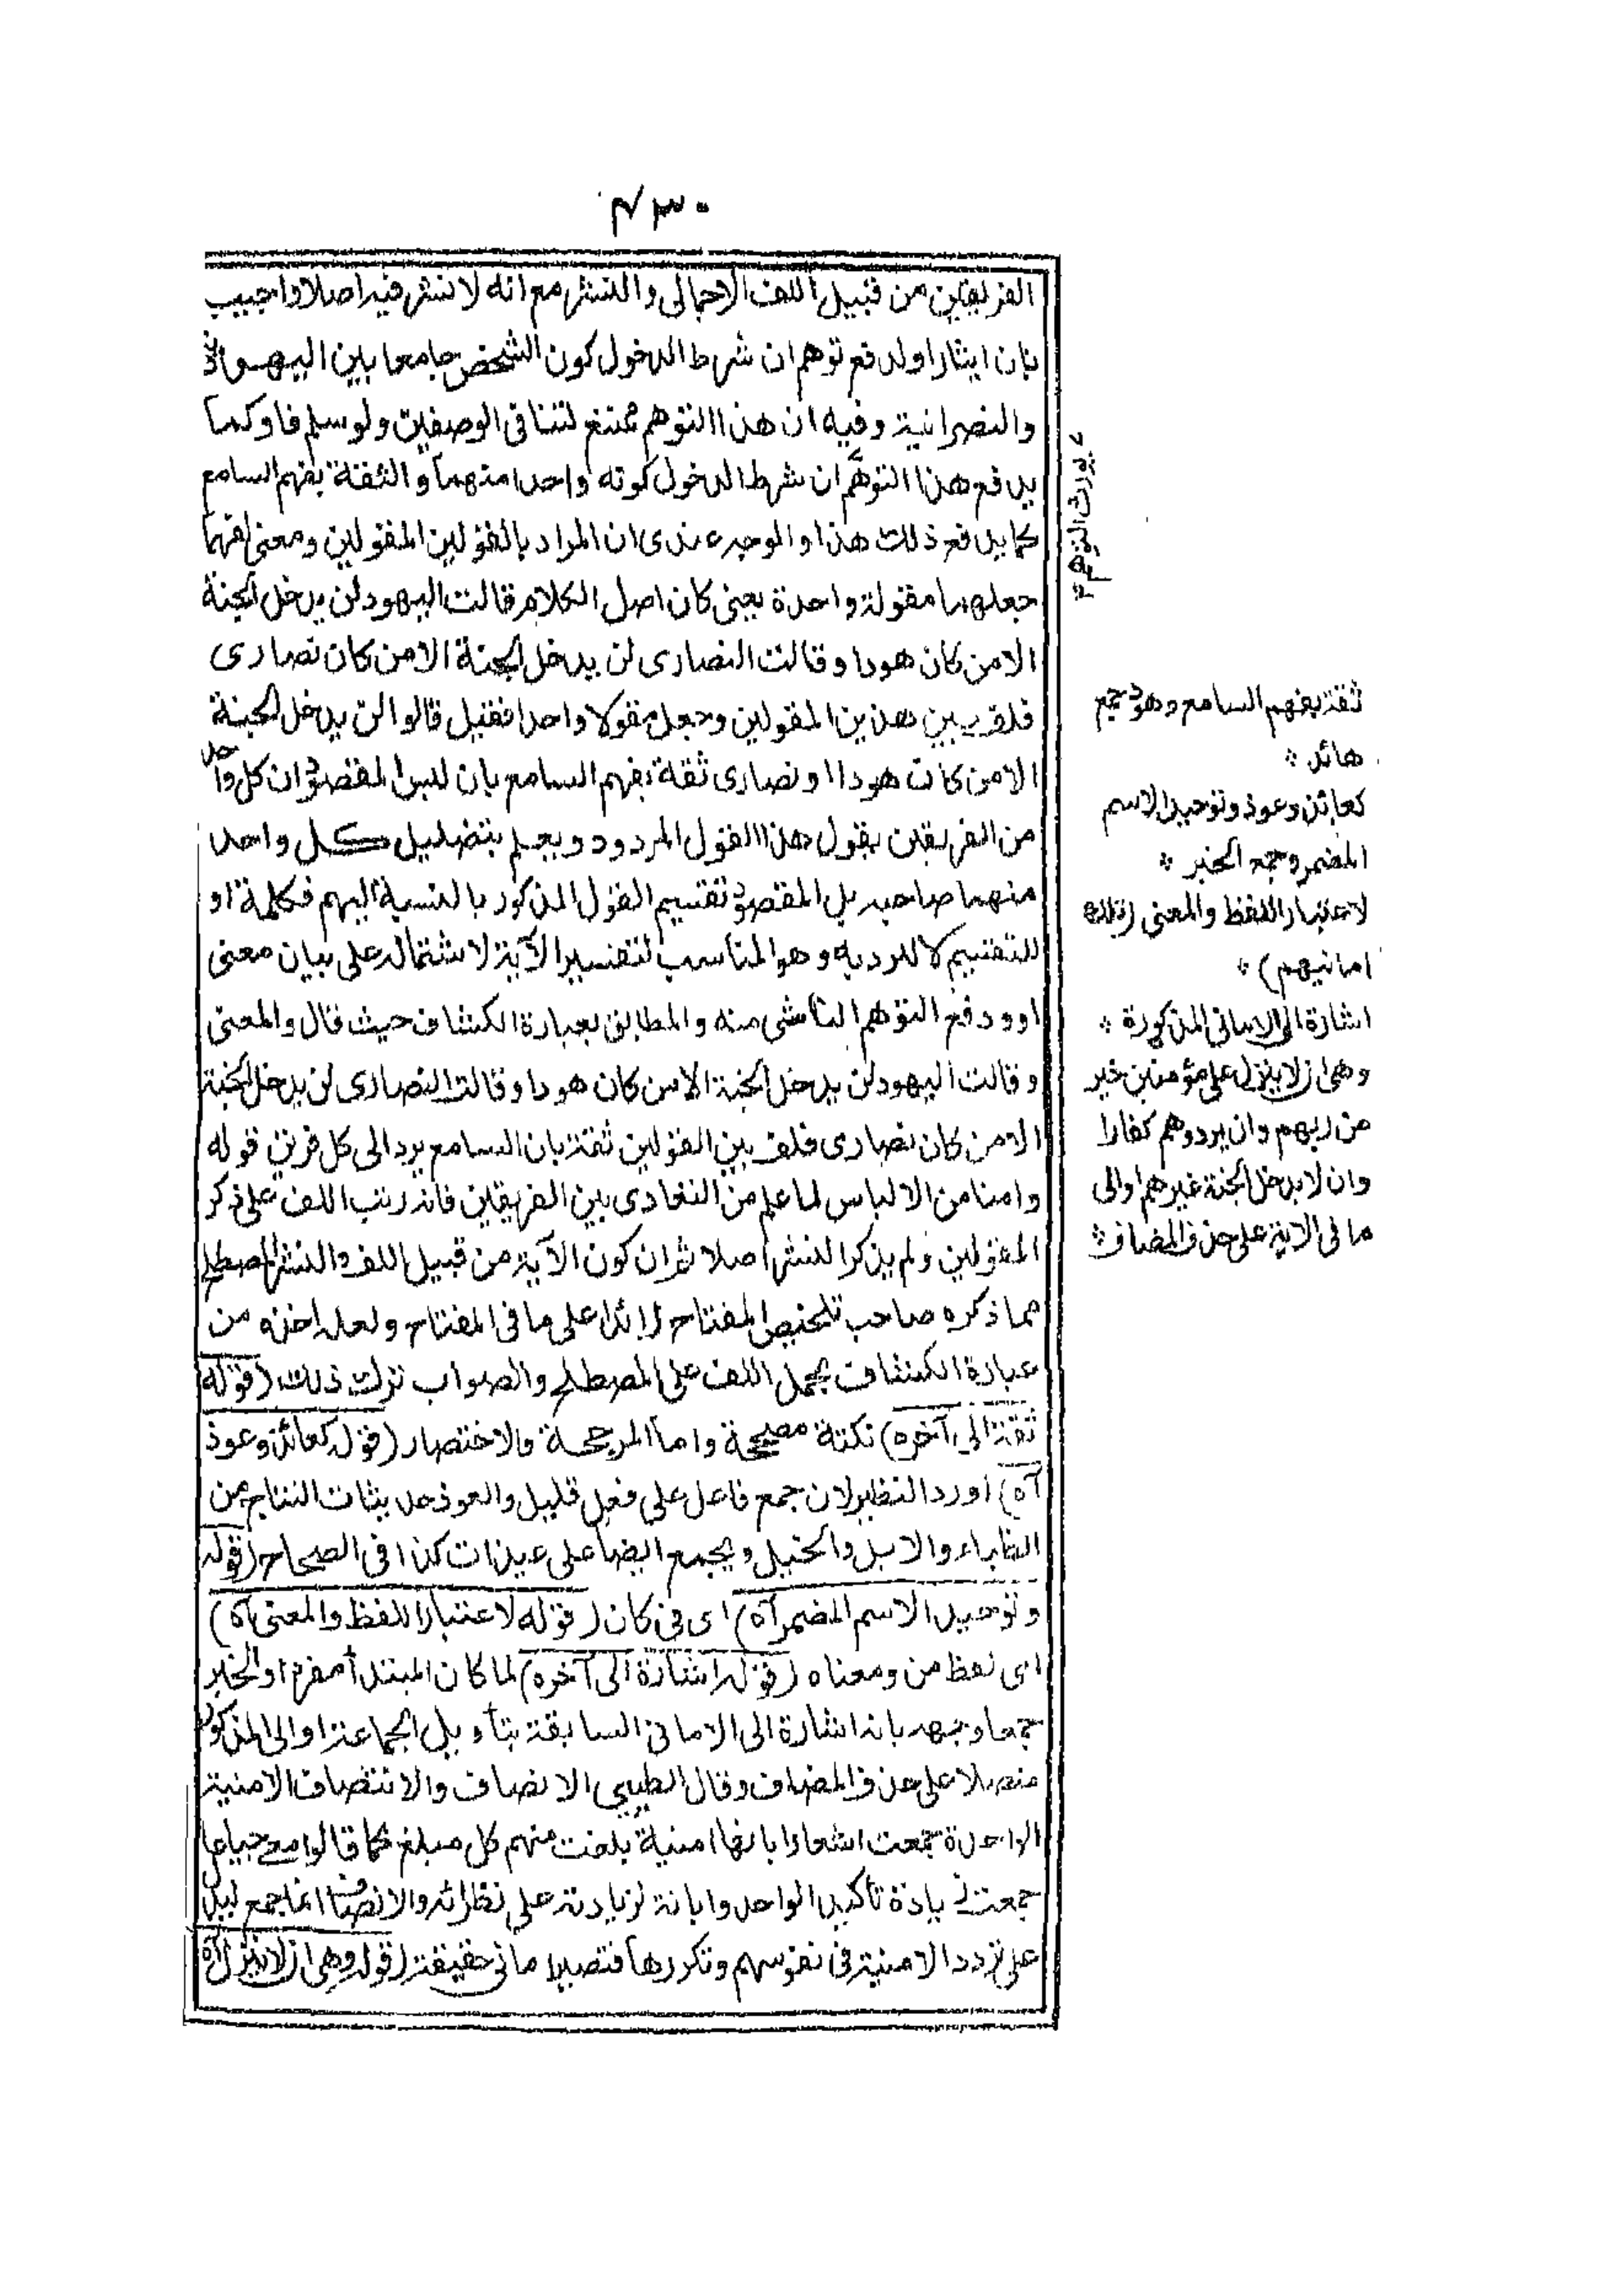 ۴۳۰
الفريقين من قبيل اللف الاجمالى والنشر مع انه لا نشر فيه اصلا واجيب
بان ايثار او لدفع توهم ان شرط الدخول كون الشخص جامعا بين اليهودية
والنصرانية وفيه ان هذا التوهم ممتنع لتنافى الوصفين ولو سلم فاو كما
يدفع هذا التوهم ان شرط الدخول كونه واحدا منهما والثقة بفهم السامع
كما يدفع ذلك هذا والوجه عندى ان المراد بالقولين المقولين ومعنى لفهما
جعلهما مقولة واحدة يعنى كان اصل الكلام قالت اليهود لن يدخل الجنة
الا من كان هودا وقالت النصارى لن يدخل الجنة الا من كان نصارى
فلف بين هذين المقولين وجعل مقولا واحدا فقيل قالوا لن يدخل الجنة
الا من كان هودا او نصارى ثقة بفهم السامع بان ليس المقصود ان كل واحد
من الفريقين يقول هذا القول المردود ويعلم بتضليل كل واحد
منهما صاحبه بل المقصود تقسيم القول المذكور بالنسبة اليهم فكلمة او
للتقسيم لا للرديد وهو المناسب لتفسير الآية لاشتماله على بيان معنى
او ودفع التوهم الناشى منه والمطابق بعبارة الكشاف حيث قال والمعنى
وقالت اليهود لن يدخل الجنة الا من كان هودا وقالت النصارى لن يدخل الجنة
الا من كان نصارى فلف بين القولين ثقة بان السامع يرد الى كل فريق قوله
وامنا من الالباس لما علم من التعادى بين الفريقين فانه رتب اللف على ذكر
المقولين ولم يذكر النشر اصلا ثم ان كون الآية من قبيل اللف والنشر المصطلح
مما ذكره صاحب تلخيص المفتاح زائدا على ما فى المفتاح ولعله اخذه من
عبارة الكشاف بحمل اللف على المصطلح والصواب ترك ذلك (قوله
ثقة الى آخره) نكتة مصححة واما المرجحة فالاختصار (قوله كعائذ وعوذ
آه) اورد النظير لان جمع فاعل على فعل قليل والعوذ حديثات النتاج من
الظباء والابل والخيل ويجمع ايضا على عيذات كذا فى الصحاح (قوله
وتوحيد الاسم المضمر آه) اى فى كان (قوله لاعتبار اللفظ والمعنى آه)
اى لفظ من ومعناه (قوله اشارة الى آخره) لما كان المبتدأ مفردا والخبر
جمعا وجهه بانه اشارة الى الامانى السابقة بتأويل الجماعة او الى المذكور
متصلا على حذف المضاف وقال الطيبى الانصاف والانتصاف الامنية
الواحدة جمعت اشعارا بانها امنية بلغت منهم كل مبلغ كما قالوا معى جياعا
جمعت زيادة تأكيد الواحد وابانة لزيادته على نظرائه والانصاف انما جمع ليدل
على تردد الامنية فى نفوسهم وتكررها فتصير امانى حقيقة (قوله وهى ان لا ينزل آه
يورث التوهم
ثقة بفهم السامع وهود جمع
هائد
كعائذ وعوذ وتوحيد الاسم
المضمر وجمع الخبر
لاعتبار اللفظ والمعنى (تلك
امانيهم)
اشارة الى الامانى المذكورة
وهى ان لا ينزل على مؤمنين خير
من ربهم وان يردوهم كفارا
وان لا يدخل الجنة غيرهم او الى
ما فى الاية على حذف المضاف